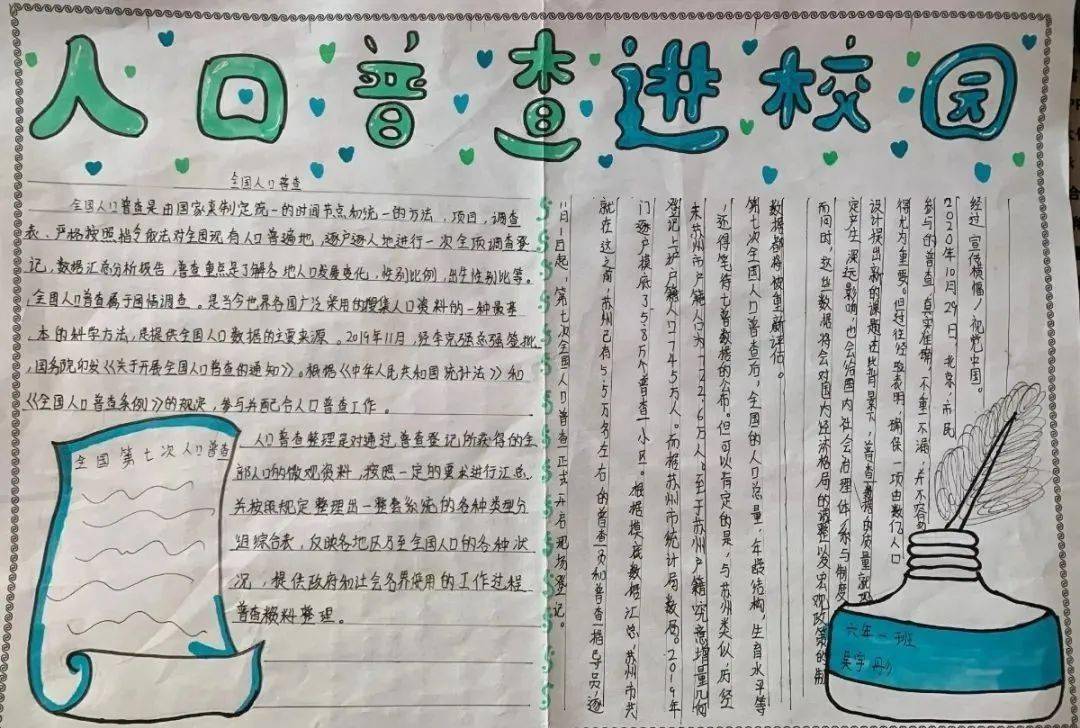 人口普查进校园
全国人口普查
全国人口普查是由国家来制定统一的时间节点和统一的方法、项目、调查
表、严格按照指令依法对全国现有人口普遍地、逐户逐人地进行一次全项调查登
记，数据汇总分析报告，普查重点是了解各地人口发展变化，性别比例，出生性别比等。
全国人口普查属于国情调查。是当今世界各国广泛采用的搜集人口资料的一种最基
本的科学方法，是提供全国人口数据的主要来源。2019年11月，经李克强总强签批，
国务院印发《关于开展全国人口普查的通知》。根据《中华人民共和国统计法》和
《全国人口普查条例》的规定，参与并配合人口普查工作。
人口普查整理是对通过普查登记所获得的全
部人口的微观资料，按照一定的要求进行汇总
并按照规定整理出一整套系统的各种类型分
组综合表，反映各地区乃至全国人口的各种状
况，提供政府和社会各界使用的工作过程
普查资料整理。
全国第七次人口普查
11月1日起，第七次全国人口普查正式开启现场登记。
就在这之前，苏州已有5.5万名左右的普查员和普查指导员逐
门逐户摸底了5.8万个普查小区。根据摸底数据汇总，苏州市共
登记上沪户籍人口745万人。而据苏州市统计局数据，2019年
末苏州市户籍人口为722.6万人。至于苏州户籍究竟增量几何
还得等待七普数据的公布。但可以肯定的是，与苏州类似，历经
第七次全国人口普查后，全国的人口总量，年龄结构，生育水平等
数据都将被重新评估。
而同时，这些数据将会对国内经济格局的调整以及宏观政策的制
定产生深远影响，也会给国内社会治理体系与制度
设计提出新的课题。在此背景下，普查数据的质量就
得尤为重要。但过往经验表明，确保一项由数亿人口
参与的普查，真实准确，不重不漏，并不容易
2020年10月29日，北京，市民
经过宣传横幅
六年一班